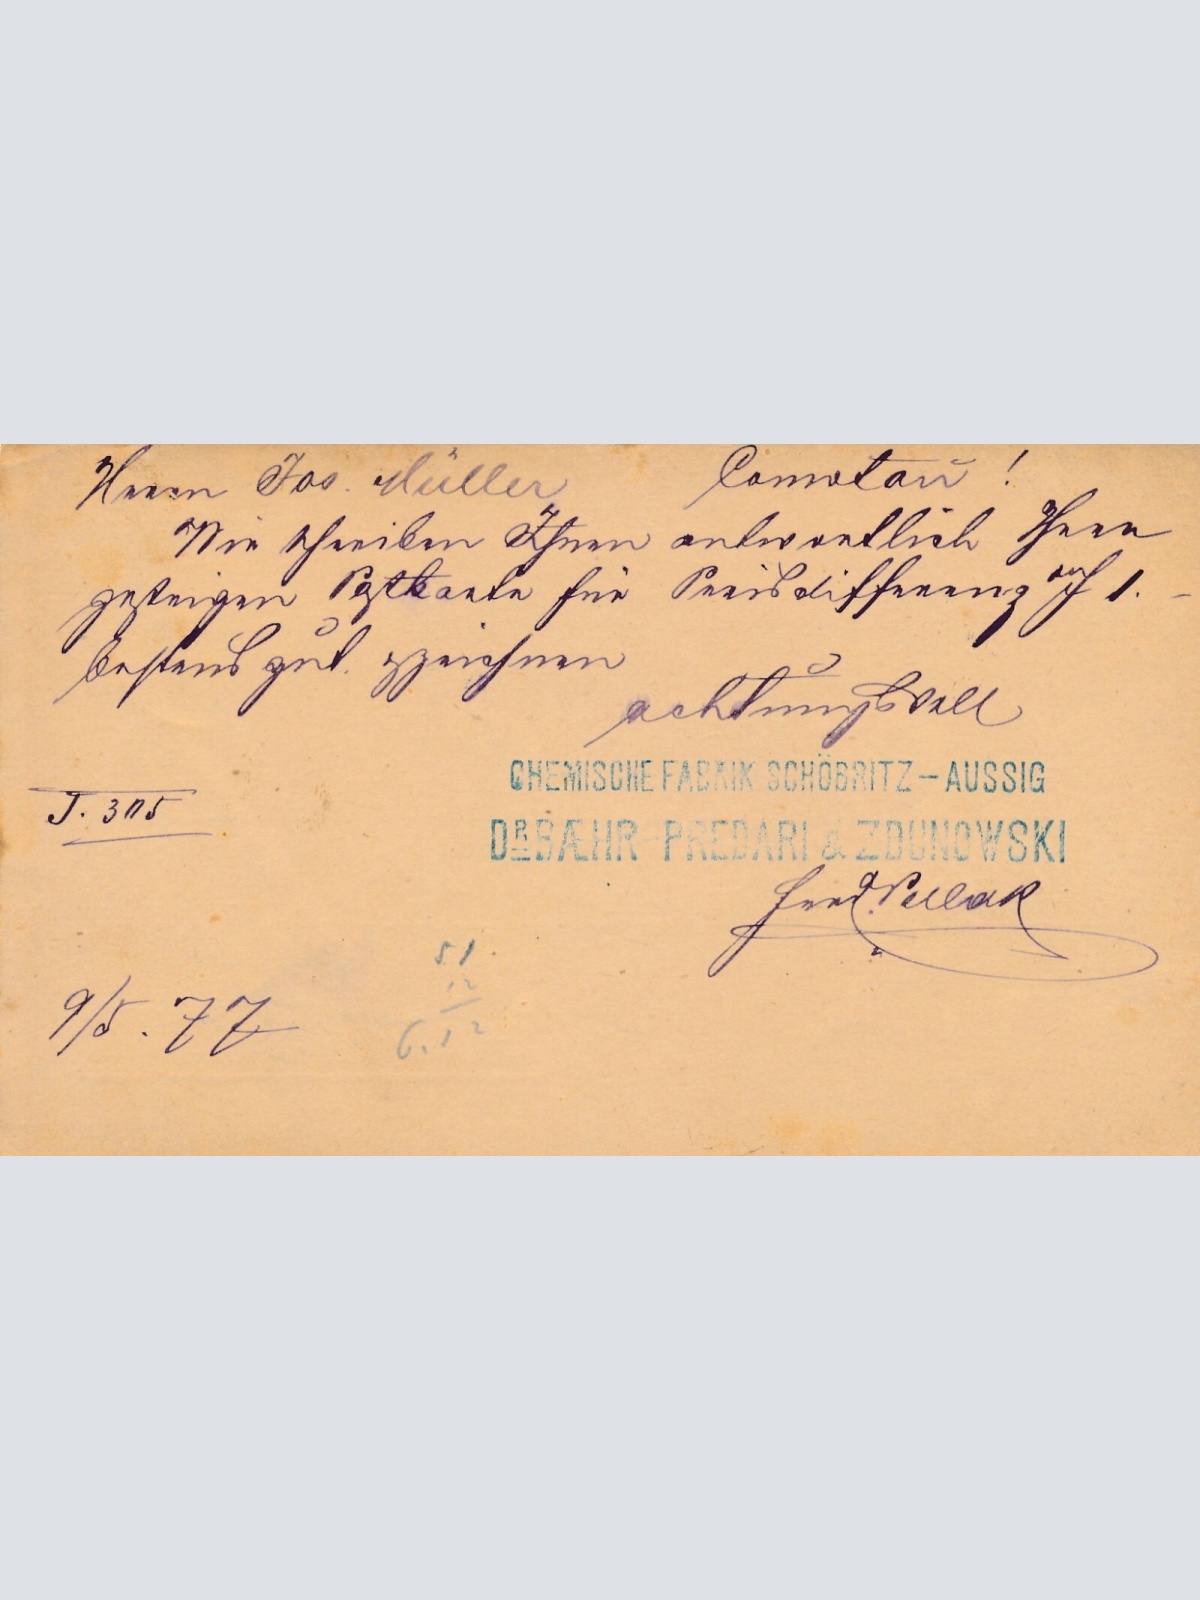 Herrn Jos. Müller Comotau!
Wir schreiben Ihnen antwortlich Ihrer
gestrigen Postkarte für Preisdifferenz 1.-
bestens gut. zeichnen
achtungsvoll
CHEMISCHE FABRIK SCHÖBRITZ – AUSSIG
DR BÆHR PREDARI & ZDUNOWSKI
Ferd. Pollak
J. 305
51.
12
6.12
9/5. 77